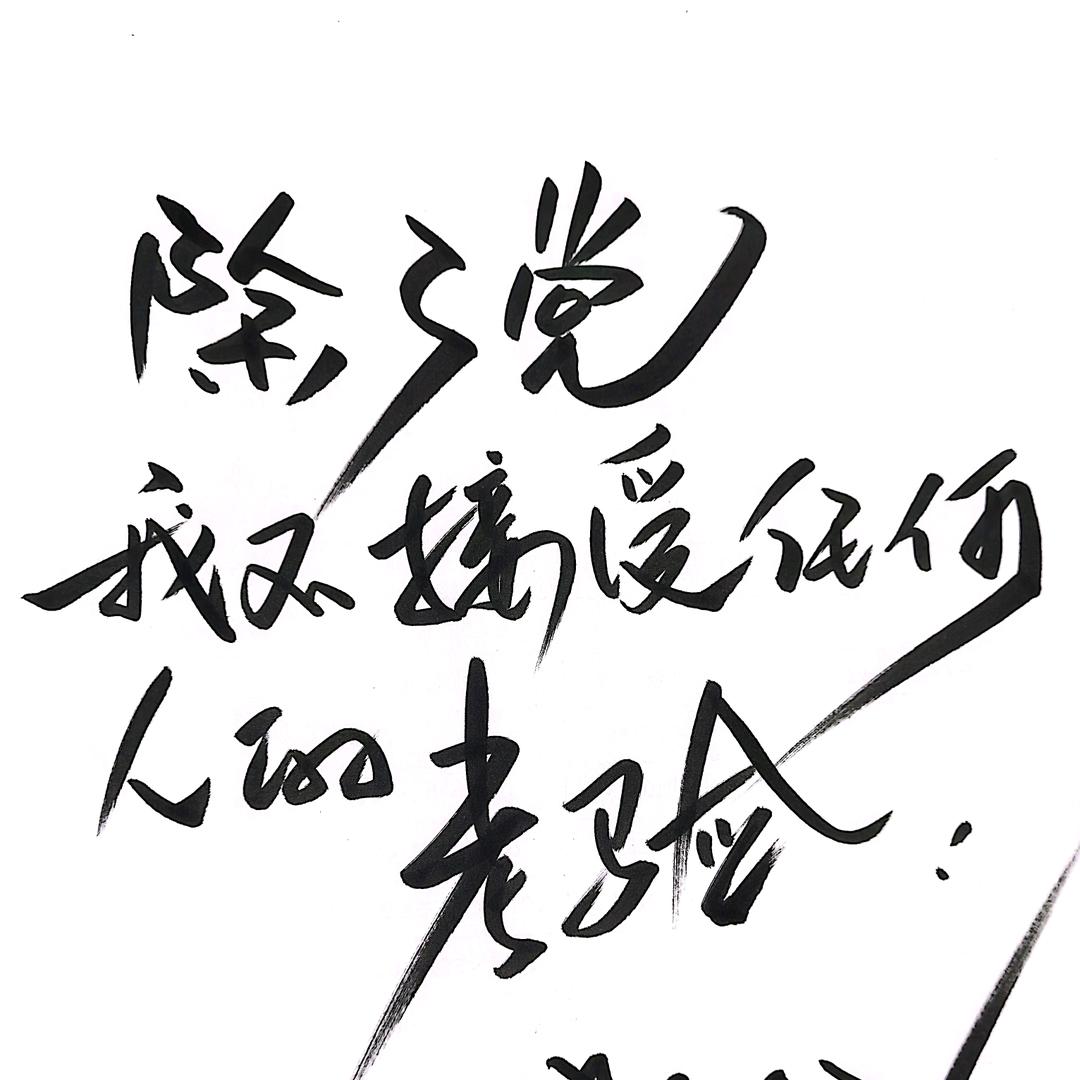 除了党
我不接受任何
人的考验：